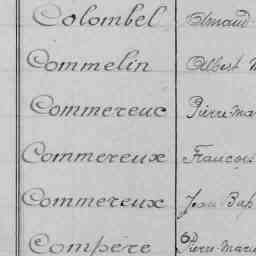 Colombel Arnaud
Commelin Albert M
Commereuc Pierre-Ma
Commereux François
Commereux Jean Bap
Compère Pierre-Marie